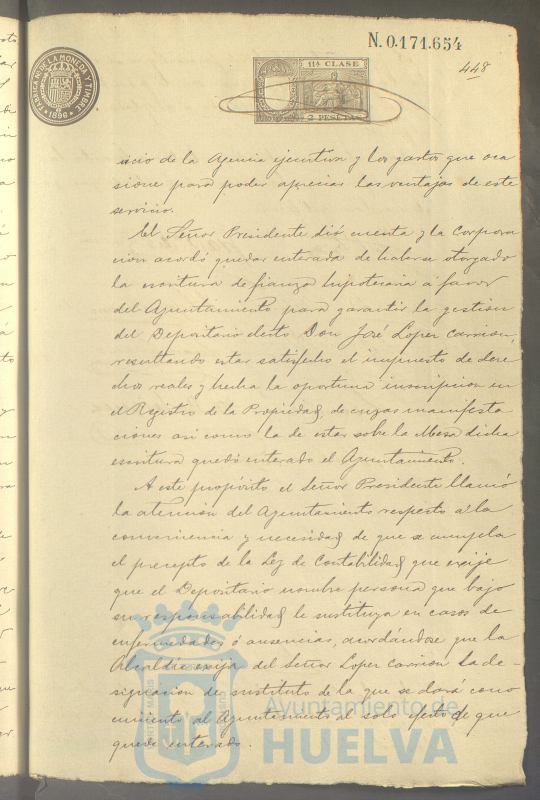 N. 0.171.654
448
FABRICA NAL DE LA MONEDA Y TIMBRE
1896
11ª CLASE
2 PESETAS
vicio de la Agencia ejecutiva y los gastos que oca
sione para poder apreciar las ventajas de este
servicio.
El Señor Presidente dió cuenta y la Corpora
cion acordó quedar enterada de haberse otorgado
la escritura de fianza hipotecaria á favor
del Ayuntamiento para garantir la gestion
del Depositario electo Don José Lopez Carrion,
resultando estar satisfecho el impuesto de dere
chos reales y hecha la oportuna inscripcion en
el Registro de la Propiedad, de cuyas manifesta
ciones asi como la de estar sobre la Mesa dicha
escritura quedó enterado el Ayuntamiento.
A este propósito el Señor Presidente llamó
la atencion del Ayuntamiento respecto á la
conveniencia y necesidad de que se cumpla
el precepto de la Ley de Contabilidad que exije
que el Depositario nombre persona que bajo
su responsabilidad le sustituya en casos de
enfermedades ó ausencias, acordándose que la
Alcaldia exija del Señor Lopez Carrion la de-
signacion de sustituto de la que se dará cono
cimiento al Ayuntamiento al solo efecto de que
quede enterado.
Ayuntamiento de
HUELVA